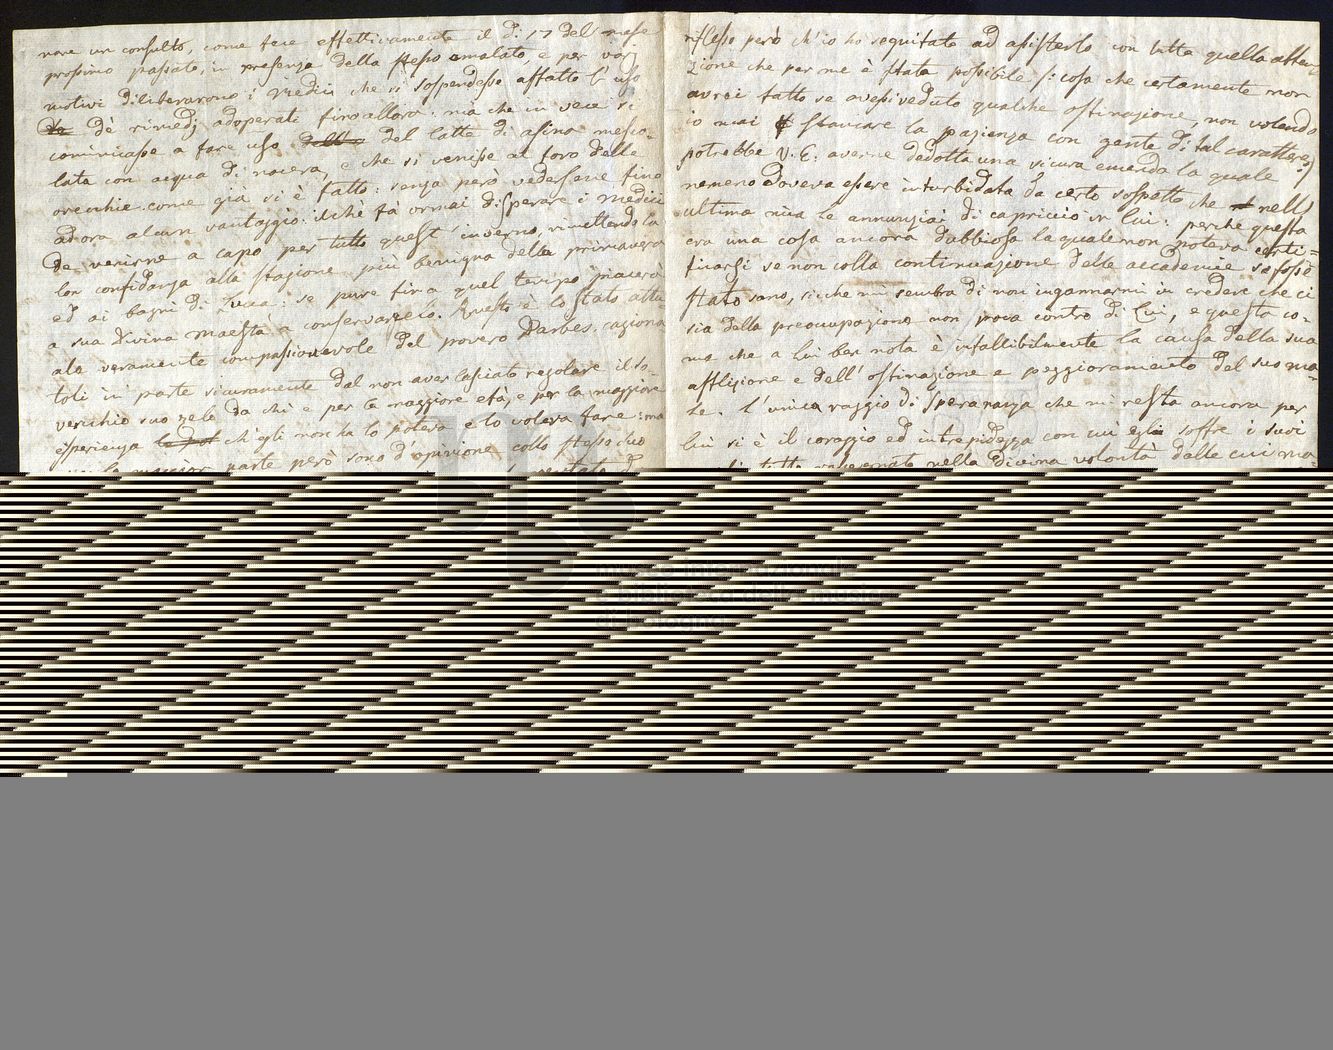 nare un consulto, come fece effettivamente il dì 17 del mese
prossimo passato, in presenza dello stesso amalato, e per varj
motivi diliberarono i Medici che si sospendesse affatto l'uso
de' rimedj adoperati fino allora: mà che in vece si
cominciasse a fare uso del latte di asina mesco-
lata con acqua di nocera, e che si venisse al foro delle
orecchie come già si è fatto: senza però vedersene fino
ad ora alcun vantaggio: il chè fà ormai disperare i Medici
de venirne a capo per tutto quest'inverno, rimettendo la
lor confidanza alla stagione più benigna della primavera
ed ai bagni di Lucca: se pure fin a quel tempo piacerà
a sua Divina Maestà a conservarcelo. Questo è lo stato attu
ale veramente compassionevole del povero Darbes, cagiona
toli in parte sicuramente dal non aver lasciato regolare il so-
verchio suo zele da chi e per la maggiore età, e per la maggiore
esperienza ch'egli non ha lo poteva e lo voleva fare: ma
la maggior parte però sono d'opinione collo stesso suo
riflesso però ch'io ho seguitato ad assisterlo con tutta quella atten
zione che per me è stata possibile /: cosa che certamente non
avrei fatto se avessi veduto qualche ostinazione, non volendo
io mai stancare la pazienza con gente di tal carattere :/
potrebbe V. E. averne dedotta una sicura emenda la quale
nemeno doveva essere inturbidata da certo sospetto che nell
ultima mia le annunziai di capriccio in lui: perche questa
era una cosa ancora dubbiosa la quale non poteva certi=
ficarsi se non colla continuazione delle accademie se fosse
stato sano, sicche mi sembra di non ingannarmi in credere che ci
sia della preoccupazione non poca contro di Lui, e questa co-
ma che a lui ben nota è infallibilmente la causa della sua
afflizione e dell'ostinazione e peggioramento del suo ma-
le. L'unico raggio di speranza che mi resta ancora per
lui si è il coraggio ed intrepidezza con cui egli soffre i suoi
tutto rassegnato nella Divina volontà dalle cui ma-
museo internazionale
e biblioteca della musica
di bologna